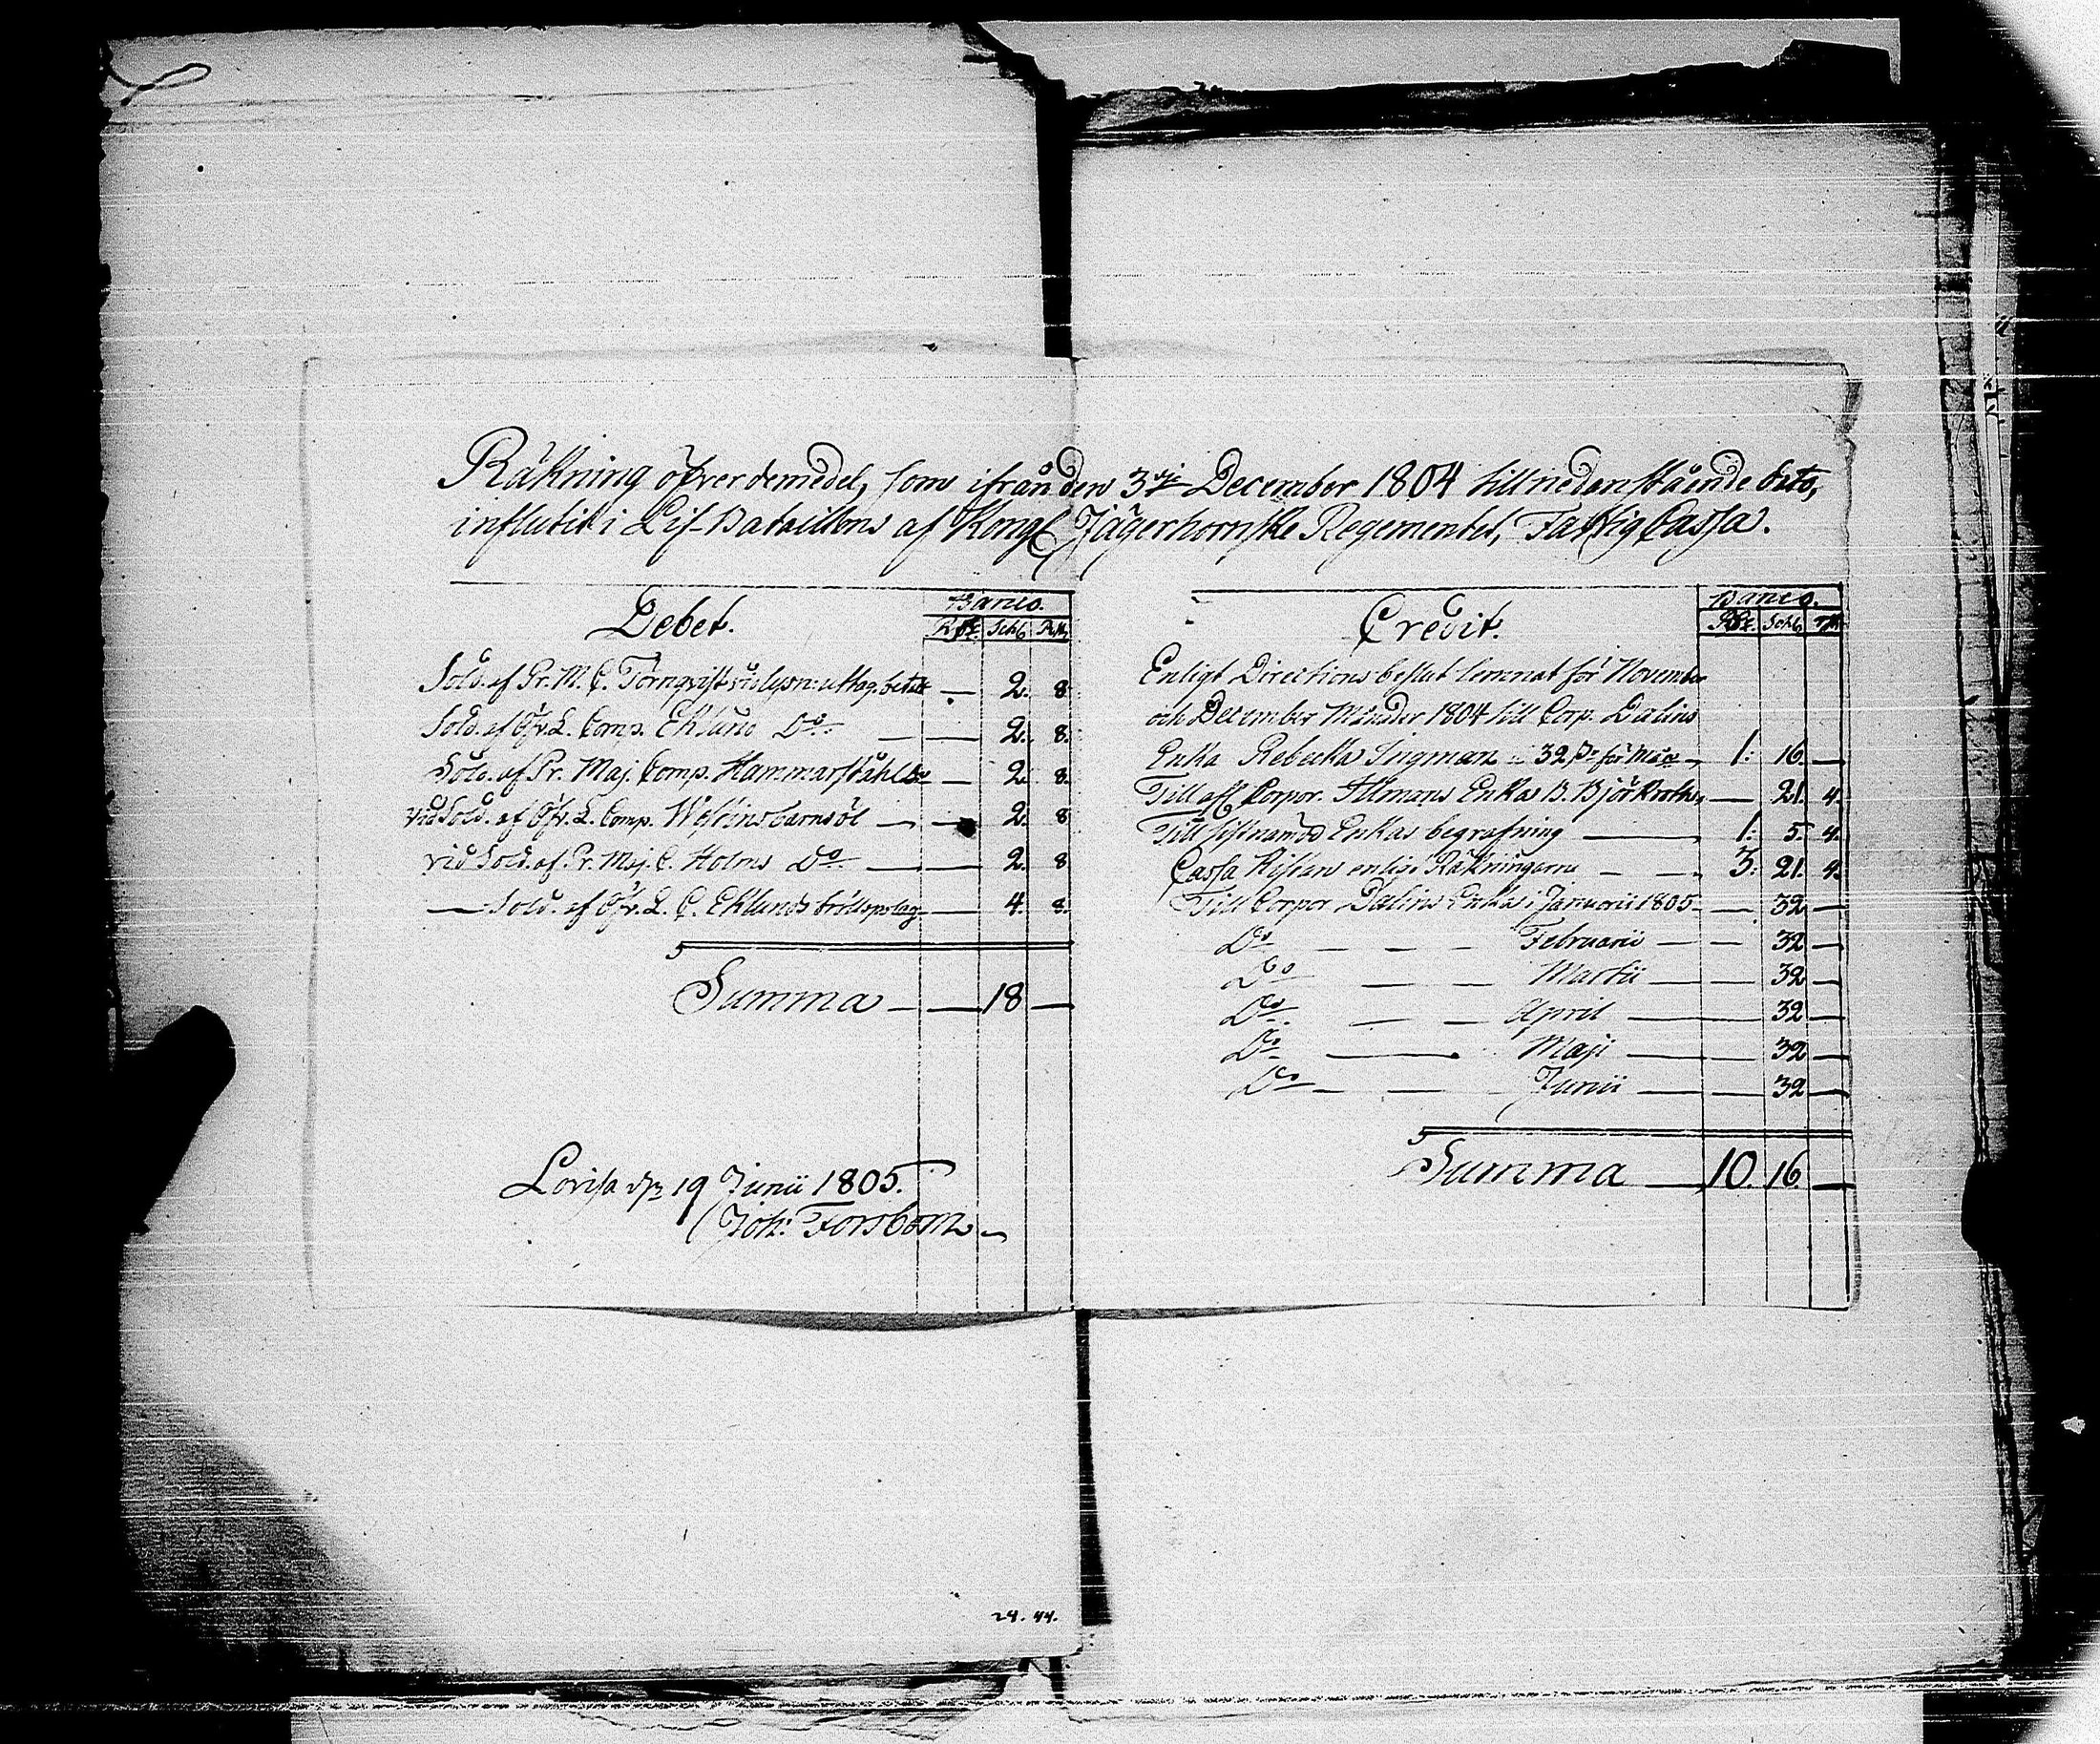 Räkning öfver de medel, som ifrån den 3dje December 1804 till nedanstående dato,
influtit i Lif-Bataillons af Kongl Jägerhornske Regementet, Fattig Cassa.
Debet.
Banco.
Rdr. Schl. Rst.
Sold. af Pr. M. C. Törnqvist uttag. betalt — 2. 8.
Sold. af Öfv. L. Comp. Eklund Do — 2. 8.
Sold. af Pr. Maj. Comp. Hammarståhl Do — 2. 8.
Vid Sold. af Öfv. L. Comp. Westins barnsöl — 2. 8
vid Sold. af Pr. Maj. C. Holms Do — 2. 8
— Sold. af Öfv. L. C. Eklunds bröllopslag — 4. 8.
Summa — 18 —
Lovisa den 19 Junii 1805.
Joh: Forsbom
24. 44.
Credit.
Banco.
Rdr. Schl. rst
Enligt Directions beslut lemnat för November
och December Månader 1804 till Corp. Dalins
Enka Rebecka Ingman 32 s. för Mån — 1: 16. —
Till afl Corpor. Ilmans Enka B. Björkroth — 21. 4.
Till sistnämnd Enkas begrafning — 1: 5. 4.
Cassa Kistan enligt Räkningarne — 3: 21. 4.
Till Corpor Dalins Enka i Januarii 1805 — 32 —
Do — Februarii — 32 —
Do — Martii — 32 —
Do — April — 32 —
Do — Maji — 32 —
Do — Junii — 32 —
Summa — 10. 16. —